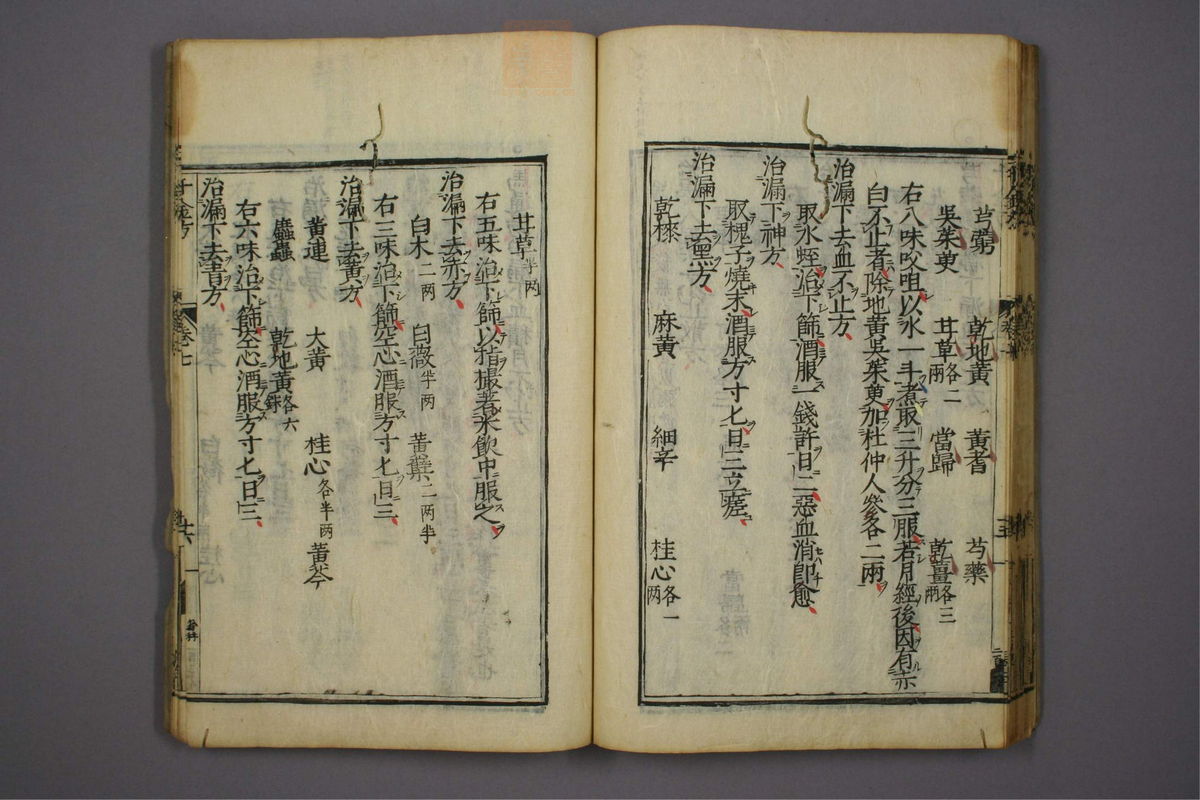 芎藭 乾地黃 黃耆 芍藥
吳茱萸 甘草各二兩 當歸 乾薑各三兩
右八味㕮咀以水一斗煮取三升分三服若月經後因有赤
白不止者除地黃吳茱萸加杜仲人參各二兩
治漏下去血不止方
取水蛭治下篩酒服一錢許日二惡血消卽愈
治漏下神方
取槐子燒末酒服方寸匕日三立瘥
治漏下去黑方
乾漆 麻黃 細辛 桂心各一兩
甘草半兩
右五味治下篩以指撮著米飲中服之
治漏下去赤方
白朮二兩 白薇半兩 黃蘗二兩半
右三味治下篩空心酒服方寸匕日三
治漏下去黃方
黃連 大黃 桂心各半兩 黃芩
䗪蟲 乾地黃各六銖
右六味治下篩空心酒服方寸匕日三
治漏下去青方
千金方 卷七 十六